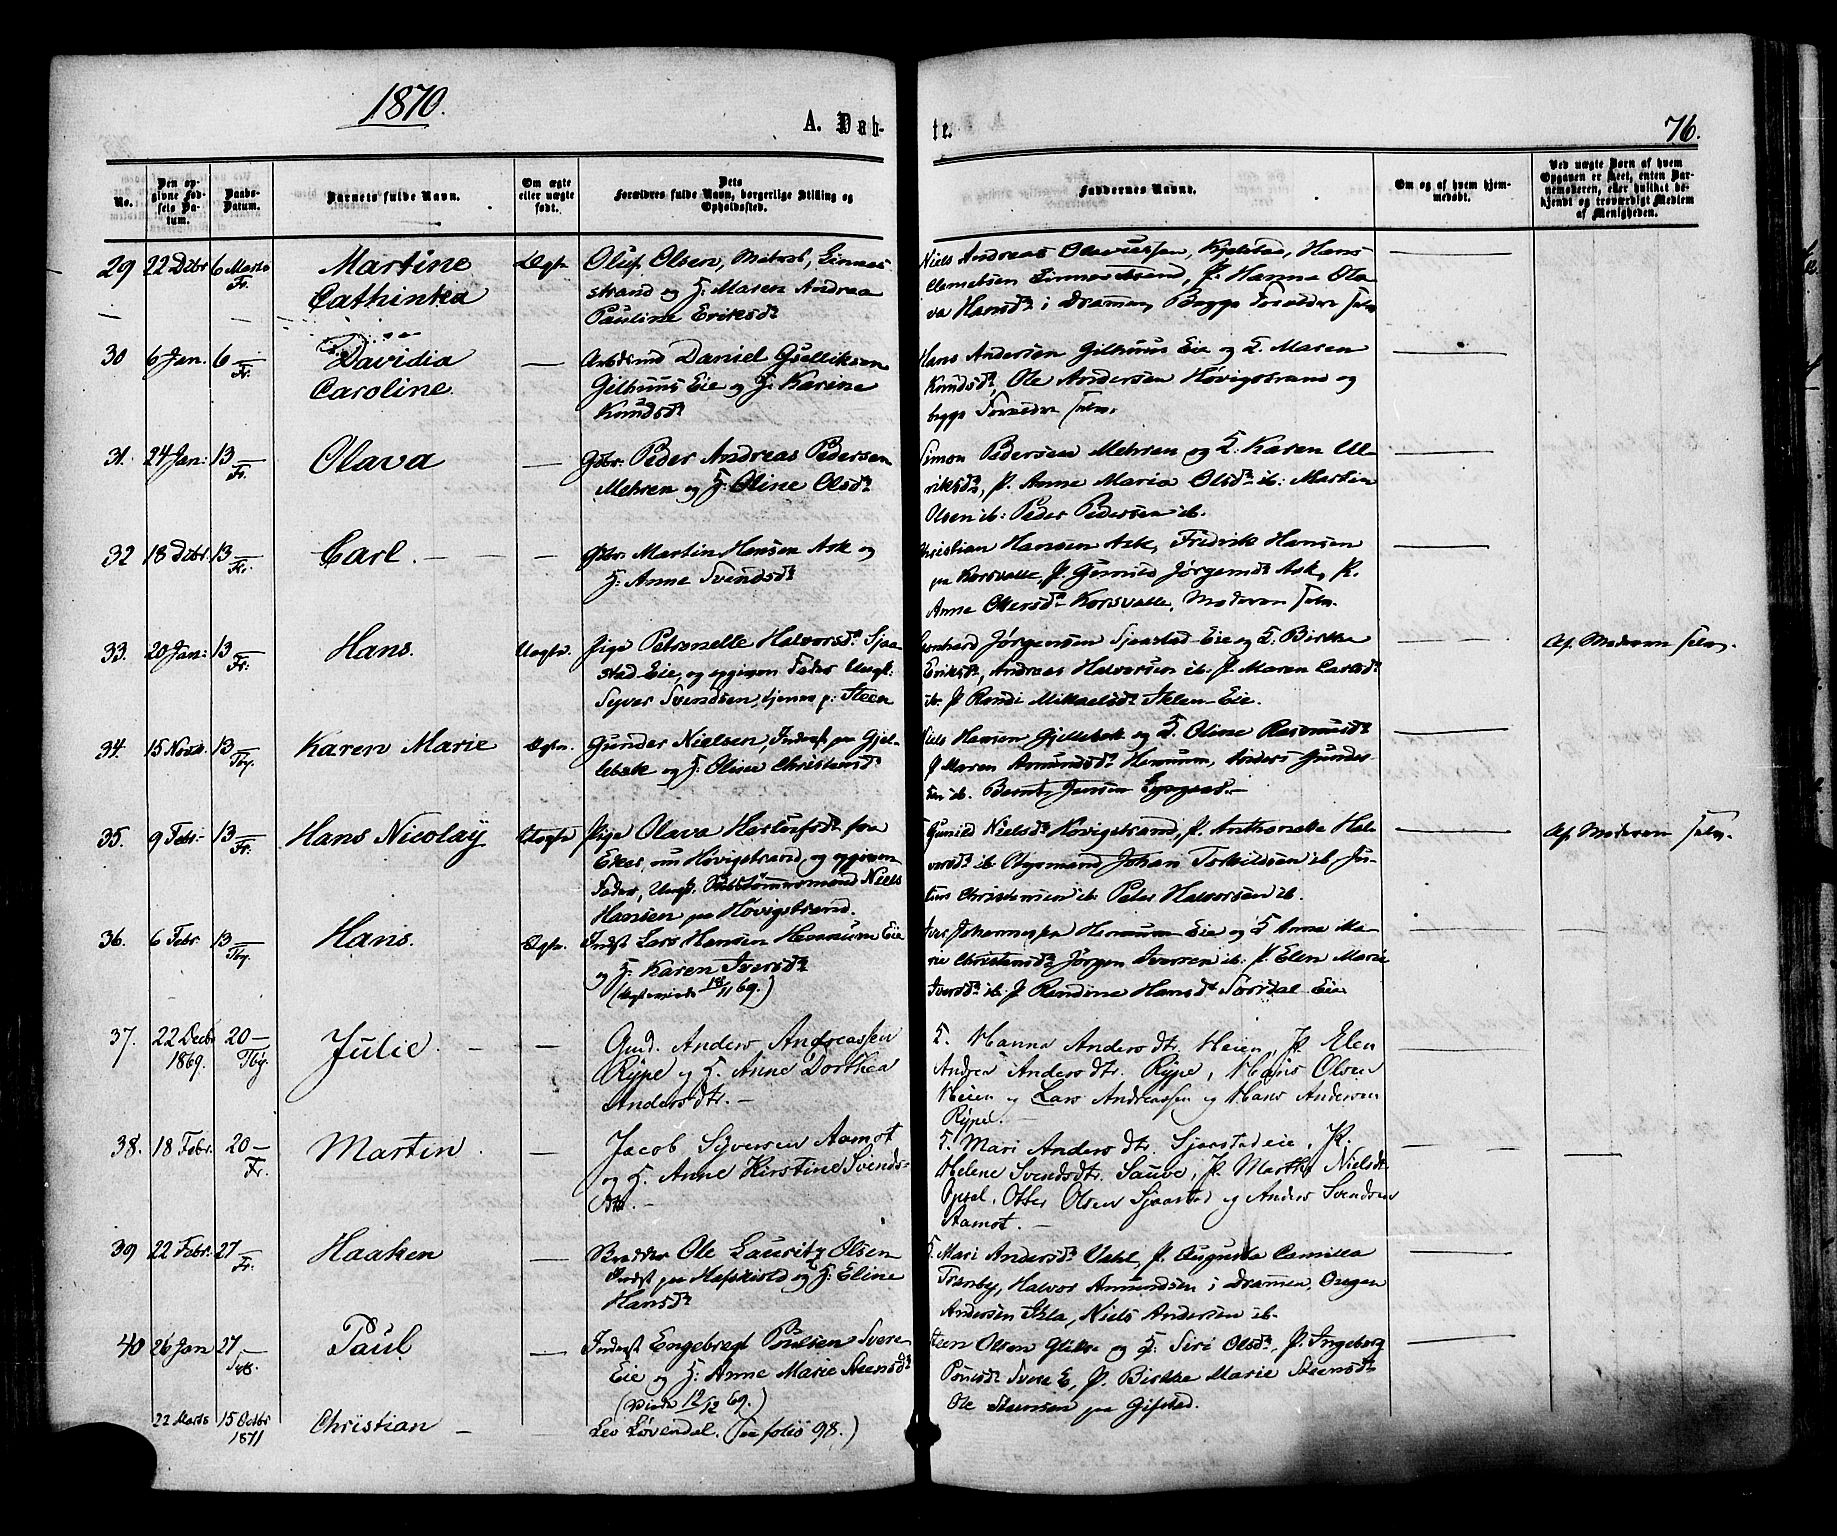 1870.
A. Døb-
te.
76.
No.
Den op-
givne Fød-
sels Da-
tum.
Daabs-
Datum.
Barnets fulde Navn.
Om ægte
eller uægte
født.
Dets
Forældres fulde Navn, borgerlige Stilling og
Opholdssted.
Faddernes Navne.
Om og af hvem hjem-
medøbt.
Ved uægte Børn af hvem
Opgaven er skeet, enten Bar-
nemoderen, eller hvilket be-
kjendt og troværdigt Medlem
af Menigheden.
29 22 Dcbr 6 Marts Martine Ægte. Oluf Olsen, Matros, Linnes
Fr. Cathinka strand og H: Maren Andrea
Pauline Eriksdr
Niels Andreas Olavessen, Kjelstad, Hans
Clemetsen Linnesstrand, P. Hanna Ola-
va Hansdr i Drammen, Begge Forældre selv
30 6 Jan. 6 Fr. Davidia Caroline. — Arbdsmd Daniel Gulliksen
Gilhuus Eie og H: Karine
Knudsdr
Hans Andersen Gilhuus Eie og H. Maren
Knudsdr, Ole Andersen Høvigstrand og
begge Forældre selv.
31. 24 Jan: 13 Fr. Olava — Gbr. Peder Andreas Pedersen
Mehren og H: Oline Olsdr
Simon Pedersen Mehren og H. Karen Ul-
riksdr, P. Anne Maria Olsdr ib: Martin
Olsen ib: Peder Pedersen ib.
32 18 Dcbr. 13 Fr. Carl. — — Gbr. Martin Hansen Ask og
H: Anne Svendsdr
Christian Hansen Ask, Fredrik Hansen
pa Korsvalle, P. Gunild Jørgensdr Ask, K.
Anne Olersdr Korsvalle, Moderen selv.
33. 20 Jan: 13 Fr. Hans. Uægte. Pige Petronelle Halvorsdr Sjaa-
stad-Eie, og opgiven Fader Ungk:
Syver Svendsen, tjenes p: Steen
Jørgensen Sjaastad-Eie og H. Birthe
Eriksdr, Andreas Halvorsen ib. P. Maren Carlsdr
ib. P. Randi Mikaelsdr Eie.
Af Moderen selv.
34. 15 Novb. 13 Tby. Karen Marie Ægte. Gunder Nielsen, Inderst paa Gjel-
lebæk og H: Oline Christensdr
Niels Hansen Gjellebæk og H. Oline Rasmusdr
P Maren Amundsdr Hennum, Anders Gunder-
sen ib. Bernt Jensen
35. 9 Febr. 13 Fr. Hans Nicolay Uægte Pige Olava fra
Eker, nu Høvigstrand, og opgiven
Fader, Ungk. Niels
Hansen paa Høvigstrand.
Gunild Nielsdr Høvigstrand, P. Anthonette Hal-
vorsdr ib. Johan Torkildsen ib, Ju-
lius Christensen ib. Peter Halvorsen ib.
Af Moderen selv.
36. 6 Febr 13 Tby. Hans. Ægte. Indst Lars Hansen Hennum Eie
og H. Karen Iversdr
(Ægteviede 18/11 69.)
Hennum Eie og H Anna Ma-
rie Christensdr Jørgen Iversen ib. P. Elen Marie
Iversdr ib P Randine Hansdr Eie
37. 22 Decbr 1869. 20 — Tby. Julie. — — Gmd. Anders Andreassen
Rype og H. Anne Dorthea
Andersdtr. —
H. Hanna Andersdtr. Heien, P. Elen
Andrea Andersdtr. Rype, Hans Olsen
Heien og Lars Andreassen og Hans Andersen
Rype.
38. 18 Febr. 20 — Fr. Martin. — Jacob Syversen Aamot
og H. Anne Kirstine Svends-
dtr. —
H. Mari Andersdtr. Sjaastadeie, P.
Helene Svendsdtr. Sauve, P. Marthe Nielsdtr
Opsal, Otter Olsen Sjaastad og Anders Svendsen
Aamot. —
39 22 Febr. 27 Fr. Haaken — Ole Lauritz Olsen
Indst paa og H: Eline
Hansdr
H. Mari Andersdr Vahl, P. Augusta Camilla
Tranby, Halvor Amundsen i Drammen,
Andersen Skla, Niels Andersen ib.
40 26 Jan 27 Paul — Inderst Engebregt Poulsen Svere-
Eie og H: Anne Marie Steensdr
(viede 12/12 69.)
Steen Olsen og H: Siri Olsdr, P. Ingeborg
Poulsdr Svere E, P. Birthe Marie Steensdr
Ole Steensen paa Gifstad.
22 Marts 15 Octbr 1871 Christian — Leo Løvendal. (se folio 98.)